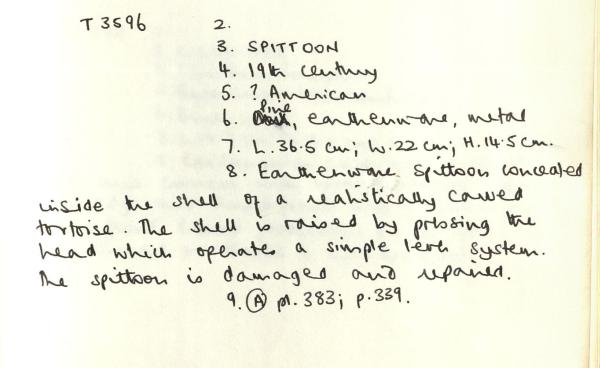 T 3596 2.
3. SPITTOON
4. 19th century
5. ? American
6. Pine, earthenware, metal
7. L. 36.5 cm; W. 22 cm; H. 14.5 cm.
8. Earthenware spittoon concealed
inside the shell of a realistically carved
tortoise. The shell is raised by pressing the
head which operates a simple lever system.
The spittoon is damaged and repaired.
9. Ⓐ pl. 383; p. 339.